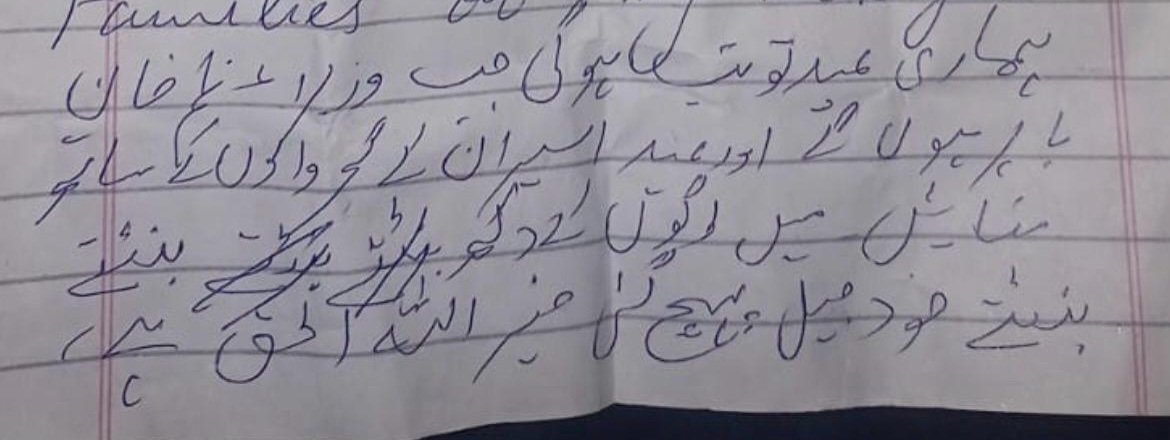 Families
ہماری عید تو تب ہی ہو گی جب وزیر اعظم خان
باہر ہوں گے اور عید اسیران کے گھر والوں کے ساتھ
منائیں میں لوگوں کے دکھ بانٹتے
بنتے خود جیل پہنچ گئی خیر اللہ الحق ہے